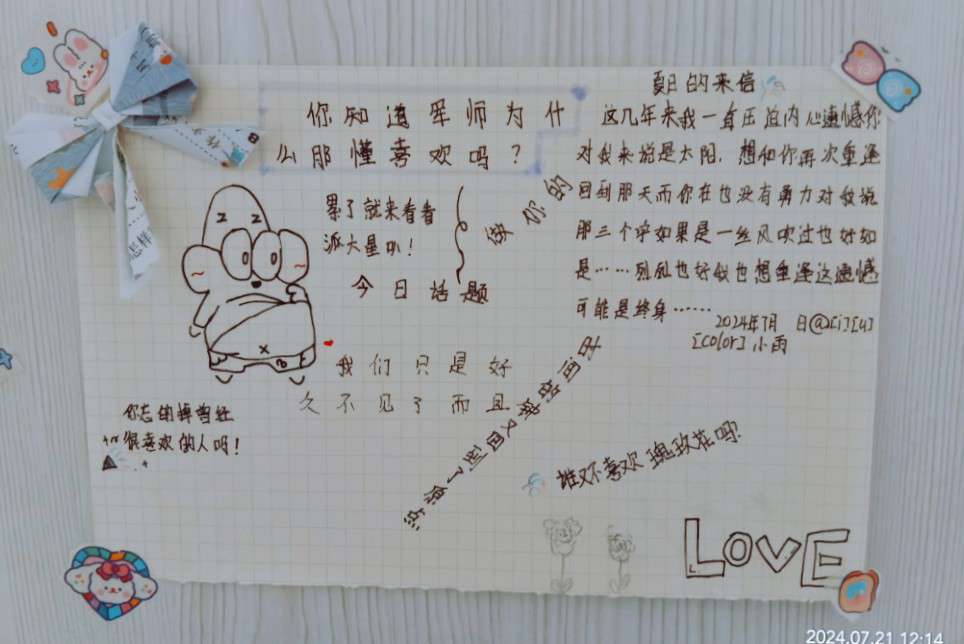 你知道军师为什
么那懂喜欢吗？
累了就来看看
派大星叭！
今日话题
我们只是好
久不见了而且
你忘的掉曾经
很喜欢的人吗！
夏日的来信
这几年来我一直在
内心遗憾你
对我来说是太阳，想和你再次重逢
回到那天而你在也没有勇力对我说
那三个字如果是一丝风吹过也好如
是……别乱也好似也想重逢这遗憾
可能是终身……
2024年7月 日@
[color]小雨
做你的
又回到了原点
谁又不喜欢瑰玫花吗?
LOVE
怎样
2024.07.21 12:14